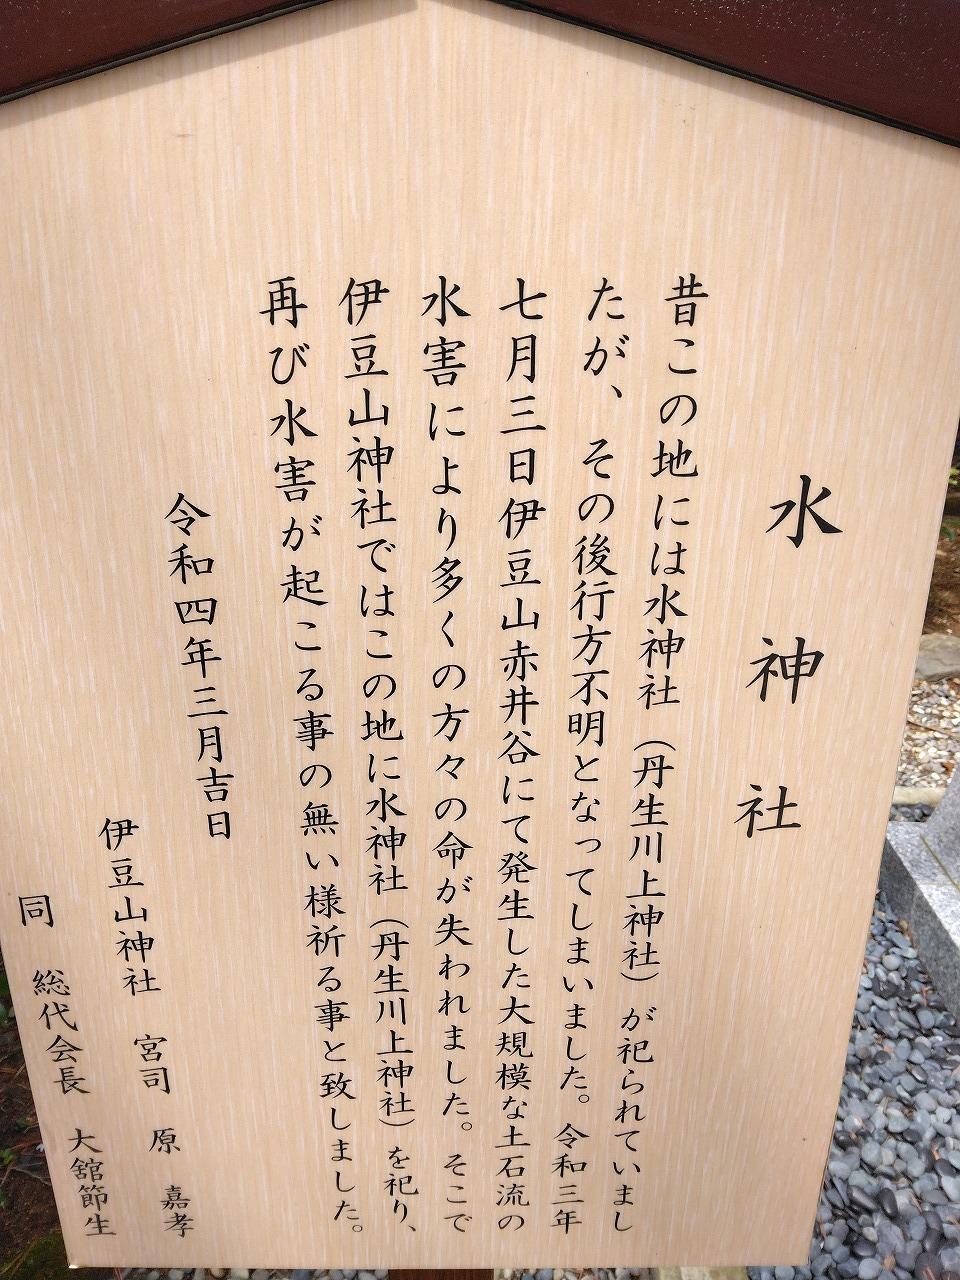 水神社
昔この地には水神社（丹生川上神社）が祀られていまし
たが、その後行方不明となってしまいました。令和三年
七月三日伊豆山赤井谷にて発生した大規模な土石流の
水害により多くの方々の命が失われました。そこで
伊豆山神社ではこの地に水神社（丹生川上神社）を祀り、
再び水害が起こる事の無い様祈る事と致しました。
令和四年三月吉日
伊豆山神社 宮司 原 嘉孝
同 総代会長 大舘節生